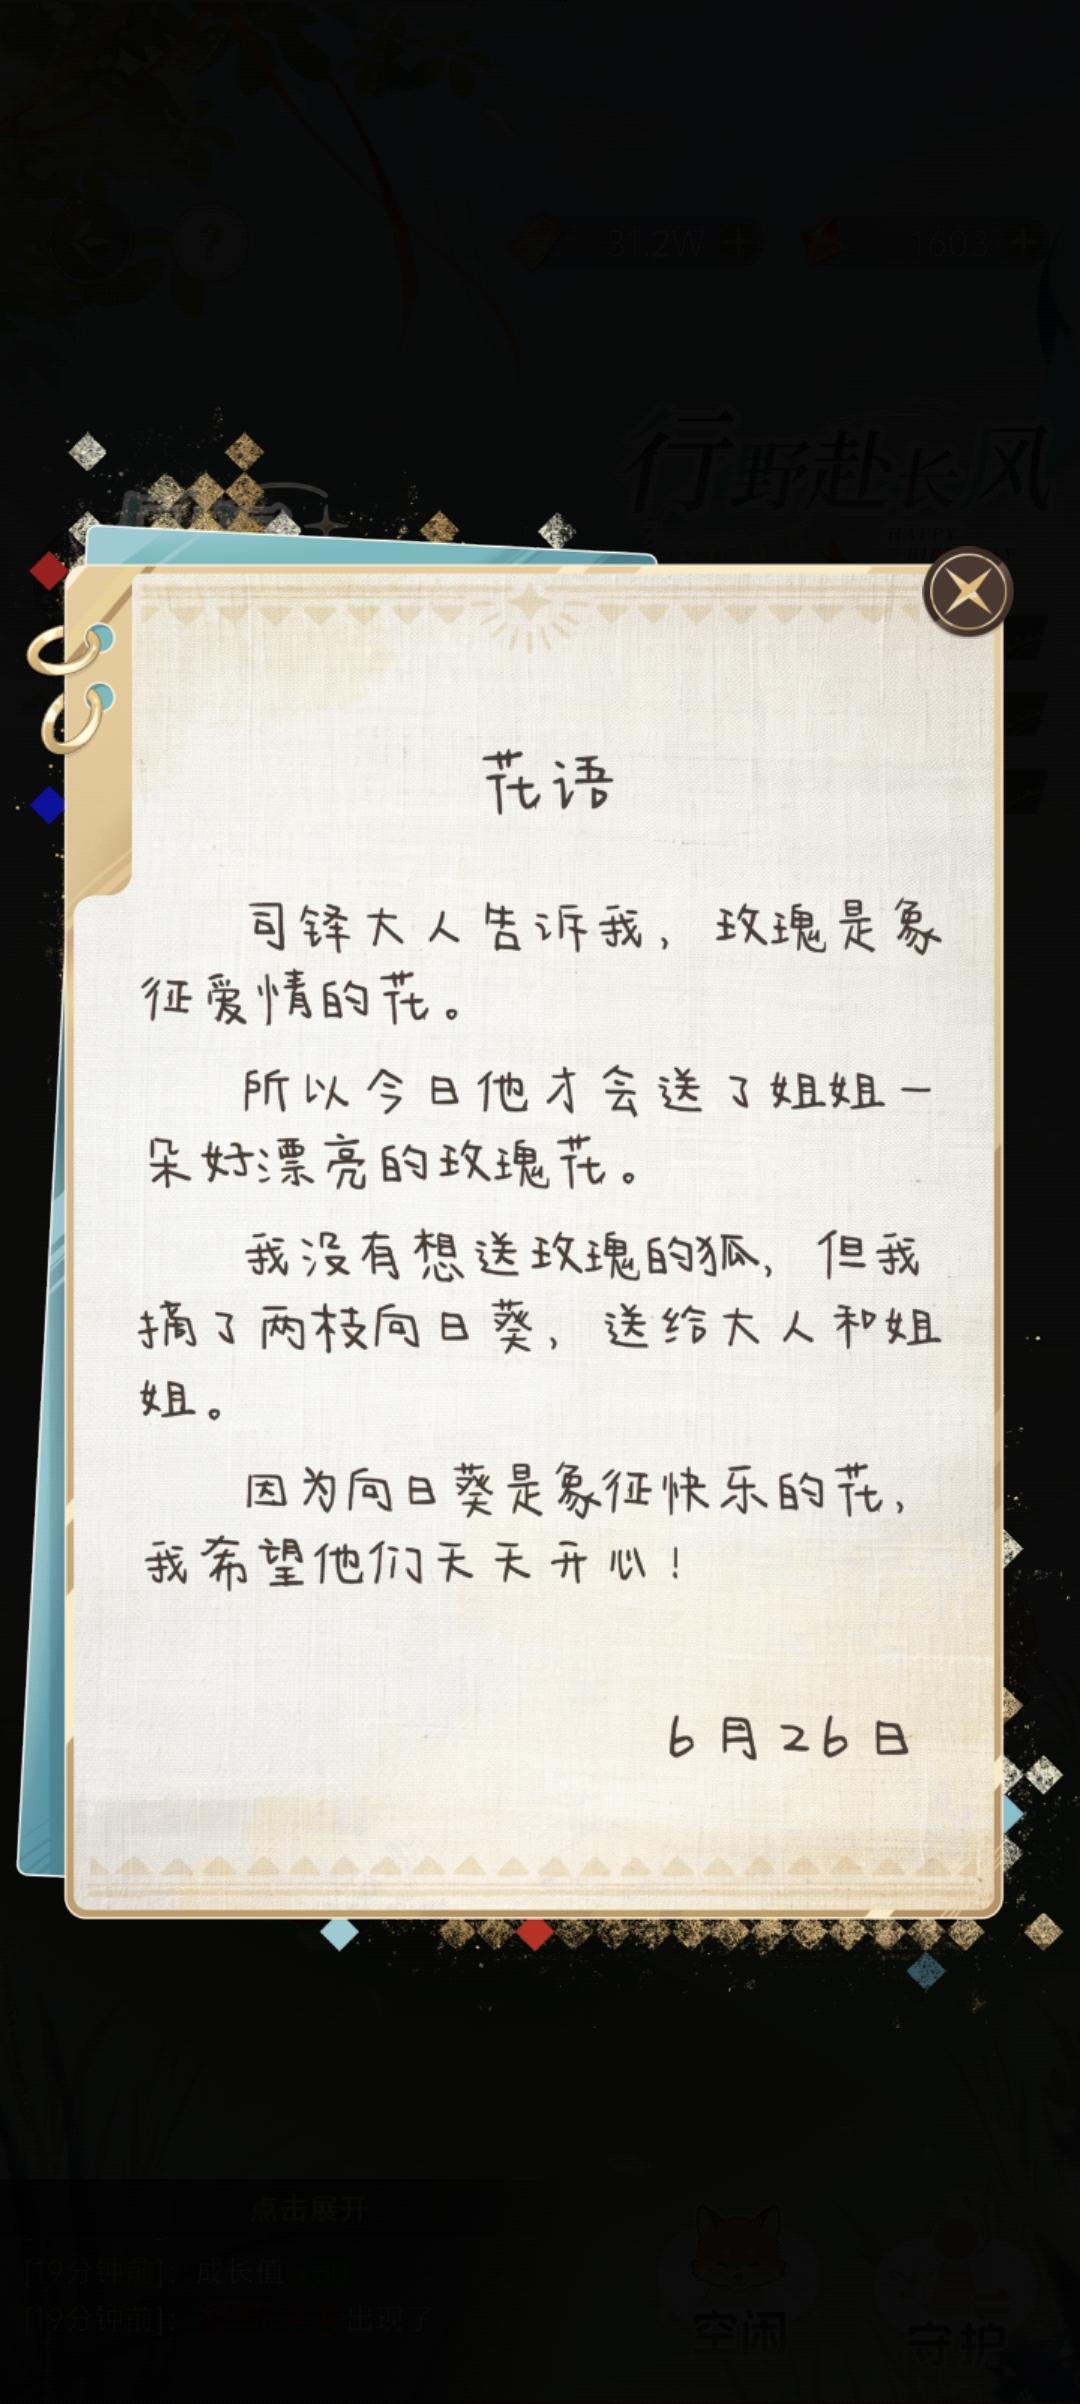 31.2W
1603
行野赴长风
HAPPY
花语
司铎大人告诉我，玫瑰是象
征爱情的花。
所以今日他才会送了姐姐一
朵好漂亮的玫瑰花。
我没有想送玫瑰的狐，但我
摘了两枝向日葵，送给大人和姐
姐。
因为向日葵是象征快乐的花，
我希望他们天天开心！
6月26日
点击展开
[19分钟前]：成长值
[19分钟前]：
出现了
空闲
守护